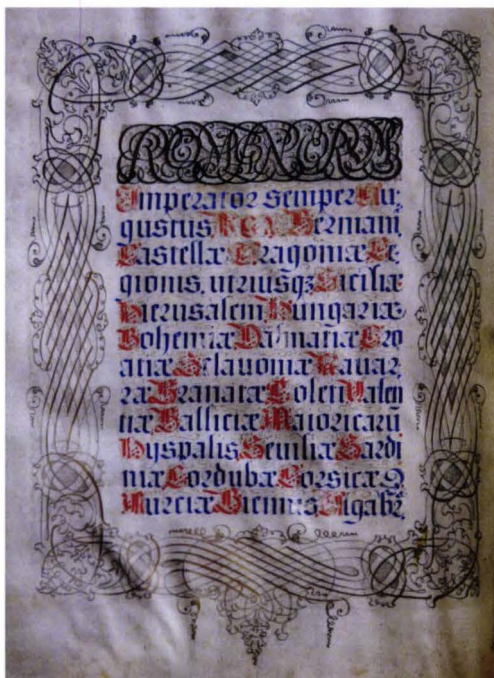 ROMANORUM
Imperator semper Au:
gustus, Rex Germani,
Castellæ Aragoniæ Le
gionis, utriusqz Siciliæ
Hierusalem Hungariæ
Bohemiæ Dalmatiæ Cro
atiæ Sclavoniæ Navar,
ra Granatæ Toleti Valen
tiæ Galliciæ Maioricarū
Hyspalis Seviliæ Sardi
niæ Cordubæ Corsicæ
Murciæ Giennis Algabr̃